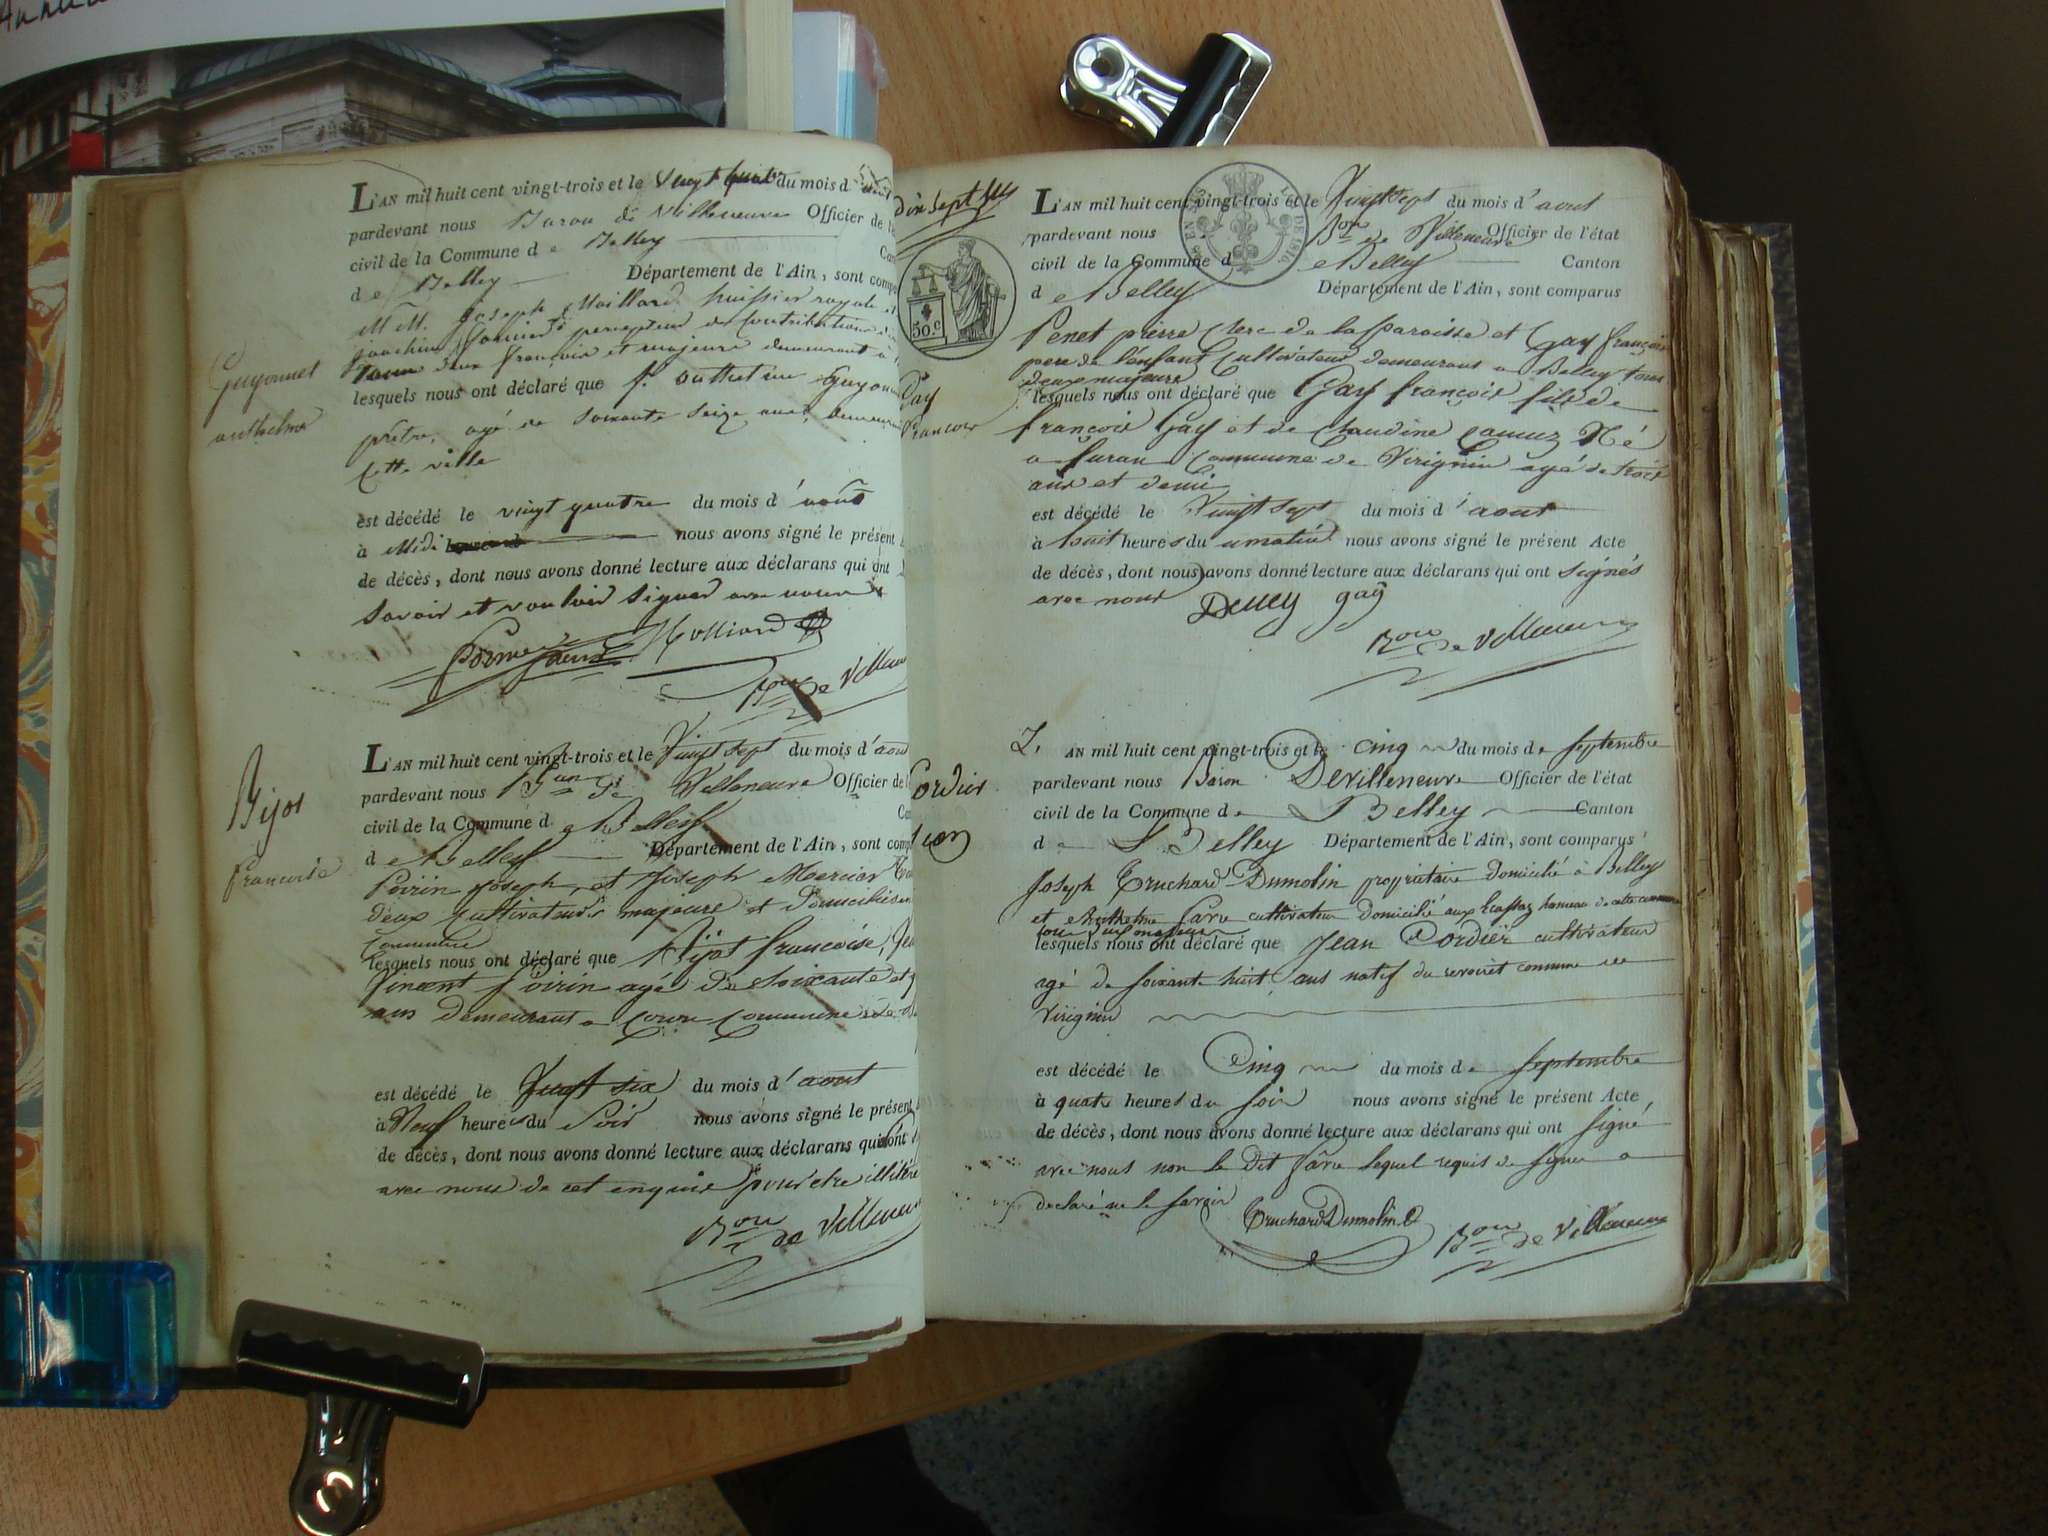 L'AN mil huit cent vingt-trois et le vingt quatre du mois d'
pardevant nous Baron de Villeneuve Officier de l'
civil de la Commune de Belley
de Belley Département de l'Ain, sont comp
MM. Joseph Maillard huissier royal et
joachim percepteur de contributions
deux françois et majeurs demeurant à
lesquels nous ont déclaré que
prêtre, agé de soixante seize ans, demeurant
cette ville
est décédé le vingt quatre du mois d'aout
à Midi nous avons signé le présent
de décès, dont nous avons donné lecture aux déclarans qui ont
savoir et vouloir signer avec nous
Bon de Villeneuve
Guyonnet
anthelme
L'AN mil huit cent vingt-trois et le Vingt sept du mois d'aout
pardevant nous Bon de Villeneuve Officier de l'
civil de la Commune de Belley
de Belley Département de l'Ain, sont comp
Poirin joseph, et Joseph Mercier
deux cultivateurs majeurs et Domiciliés en
Commune
lesquels nous ont déclaré que Bijot francoise,
Vincent Poirin agé De soixante et
ans demeurant a Commune de
est décédé le Vingt six du mois d'aout
à Neuf heures du Soir nous avons signé le présent
de décès, dont nous avons donné lecture aux déclarans qui ont
avec nous de cet enquis pour être illitéré
Bon de Villeneuve
Bijot
francoise
dix sept
50.c
L'AN mil huit cent vingt-trois et le Vingt sept du mois d'aout
pardevant nous Bon de Villeneuve Officier de l'état
civil de la Commune de Belley Canton
de Belley Département de l'Ain, sont comparus
Penet pierre Clerc de la paroisse et Gay françois
pere de l'enfant Cultivateur demeurans a Belley tous
deux majeurs
lesquels nous ont déclaré que Gay françois fils de
françois Gay et de Claudine Camuz Né
a furan Commune de Virignin agé de trois
ans et demi
est décédé le Vingt sept du mois d'aout
à huit heures du matin nous avons signé le présent Acte
de décès, dont nous avons donné lecture aux déclarans qui ont signés
avec nous
gay
Bon de Villeneuve
Gay
Francois
L'AN mil huit cent vingt-trois et le cinq du mois de septembre
pardevant nous Baron Devilleneuve Officier de l'état
civil de la Commune de Belley Canton
de Belley Département de l'Ain, sont comparus
Joseph Truchard Dumolin propriétaire Domicilié à Belley
et Anthelme favre cultivateur Domicilié aux Ecassaz hameau de cette commune
tous deux majeurs
lesquels nous ont déclaré que Jean Cordier cultivateur
agé de soixante huit ans natif du revoiret commune de
Virignin
est décédé le Cinq du mois de septembre
à quatre heures du soir nous avons signé le présent Acte
de décès, dont nous avons donné lecture aux déclarans qui ont signé
avec nous non le Dit favre lequel requis de signer a
declaré ne le savoir
Truchard Dumolin
Bon de Villeneuve
ordier